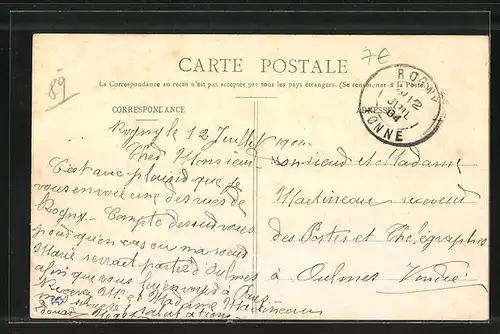 89
7€
CARTE POSTALE
La Correspondance au recto n'est pas acceptée par tous les pays étrangers. (Se renseigner à la Poste)
CORRESPONDANCE
ADRESSE
ROGNY
12
JUIL
04
YONNE
Rogny le 12 Juillet 1904
Cher Monsieur
C'est avec plaisir que je
vous envoie une des rues de
Rogny. Compte dessus vous
pour qu'en cas ou ma soeur
Marie serrait partie d'Oulmes
afin que vous
Recevez Mr. et Madame Martineau
salutations
Monsieur et Madame
Martineau receveur
des Postes et Télégraphes
à Oulmes Vendée